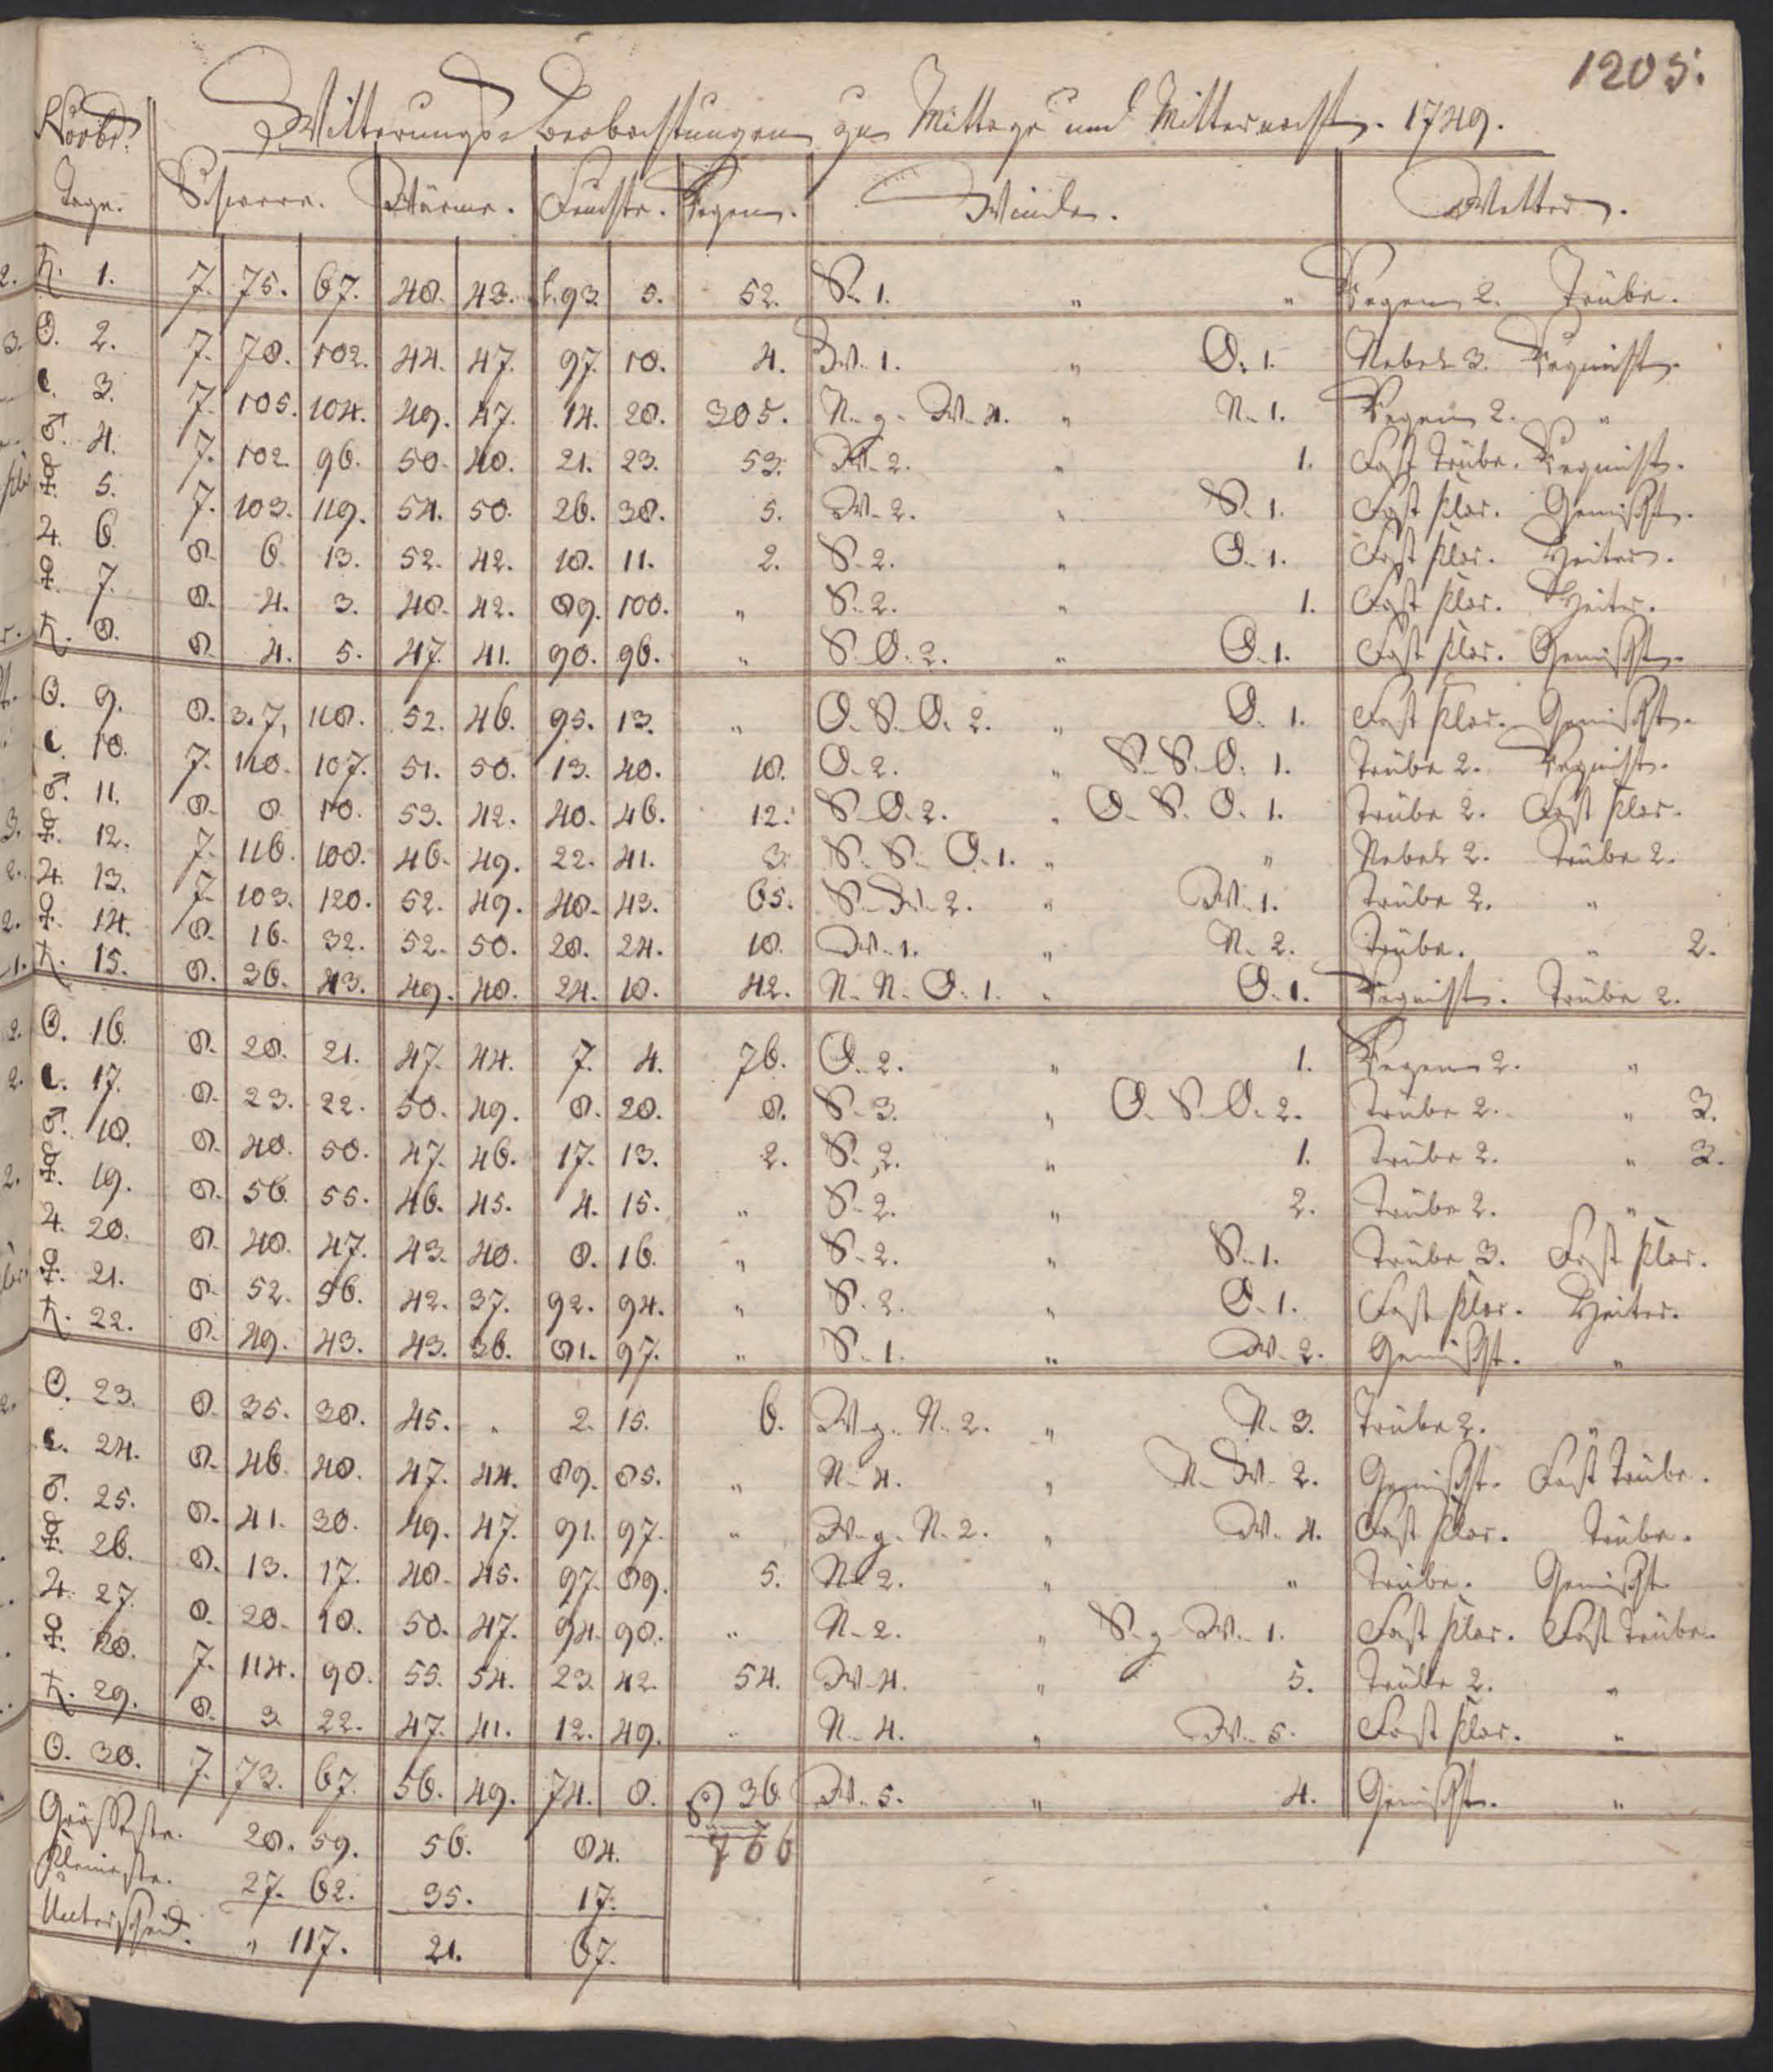 1205.
Novbr. Witterungs-Beobachtungen zu Mittage und Mitternacht. 1749.
Tage. Schwere. Wärme. Feuchte. Regen. Winde. Wetter.
♄. 1. 7. 75. 67. 48. 43. 1.93. 5. 52. S. 1. " " Regen 2. Trübe.
☉. 2. 7. 78. 102. 44. 47. 97. 10. 4. W. 1. " O. 1. Nebel 3. Regnicht.
☾. 3. 7. 105. 104. 49. 47. 14. 28. 305. N. g. W. 4. " N. 1. Regen 2. "
♂. 4. 7. 102. 96. 50. 48. 21. 23. 53. W. 2. " 1. Fast Trübe. Regnicht.
☿. 5. 7. 103. 119. 54. 50. 26. 38. 5. W. 2. " S. 1. Fast klar. Gemischt.
♃. 6. 8. 6. 13. 52. 42. 18. 11. 2. S. 2. " O. 1. Fast klar. Heiter.
♀. 7. 8. 4. 3. 48. 42. 89. 100. " S. 2. " 1. Fast klar. Heiter.
♄. 8. 8. 4. 5. 47. 41. 90. 96. " S. O. 2. " O. 1. Fast klar. Gemischt.
☉. 9. 8. 3. 7, 118. 52. 46. 95. 13. " O. S. O. 2. " O. 1. Fast klar. Gemischt.
☾. 10. 7. 118. 107. 51. 50. 13. 40. 18. O. 2. " S. S. O. 1. Trübe 2. Regnicht.
♂. 11. 8. 8. 10. 53. 42. 40. 46. 12. S. O. 2. " O. S. O. 1. Trübe 2. Fast klar.
☿. 12. 7. 116. 108. 46. 49. 22. 41. 3. S. S. O. 1. " " Nebel 2. Trübe 2.
♃. 13. 7. 103. 120. 52. 49. 48. 43. 65. S. W. 2. " W. 1. Trübe 2. "
♀. 14. 8. 16. 32. 52. 50. 28. 24. 18. W. 1. " N. 2. Trübe. " 2.
♄. 15. 8. 36. 43. 49. 48. 24. 18. 42. N. N. O. 1. " O. 1. Regnicht. Trübe 2.
☉. 16. 8. 28. 21. 47. 44. 7. 4. 76. O. 2. " 1. Regen 2. "
☾. 17. 8. 23. 22. 50. 49. 8. 20. 8. S. 3. " O. S. O. 2. Trübe 2. " 3.
♂. 18. 8. 40. 50. 47. 46. 17. 13. 2. S. 2. " 1. Trübe 2. " 3.
☿. 19. 8. 56. 55. 46. 45. 4. 15. " S. 2. " 2. Trübe 2. "
♃. 20. 8. 48. 47. 43. 40. 8. 16. " S. 2. " S. 1. Trübe 3. Fast klar.
♀. 21. 8. 52. 56. 42. 37. 92. 94. " S. 2. " O. 1. Fast klar. Heiter.
♄. 22. 8. 49. 43. 43. 36. 81. 97. " S. 1. " W. 2. Gemischt. "
☉. 23. 8. 35. 38. 45. " 2. 15. 6. W. g. N. 2. " N. 3. Trübe 2. "
☾. 24. 8. 46. 48. 47. 44. 89. 85. " N. 4. " N. W. 2. Gemischt. Fast Trübe.
♂. 25. 8. 41. 30. 49. 47. 91. 97. " W. g. N. 2. " W. 4. Fast klar. Trübe.
☿. 26. 8. 13. 17. 48. 45. 97. 89. 5. N. 2. " " Trübe. Gemischt
♃. 27. 8. 20. 10. 50. 47. 94. 98. " N. 2. " S. g. W. 1. Fast klar. Fast Trübe.
♀. 28. 7. 114. 90. 55. 54. 23. 42. 54. W. 4. " 5. Trübe 2. "
♄. 29. 8. 3. 22. 47. 41. 12. 49. " N. 4. " W. 5. Fast klar. "
☉. 30. 7. 73. 67. 56. 49. 74. 8. 36. W. 5. " 4. Gemischt. "
Größeste. 28. 59. 56. 84. 766
Kleineste. 27. 62. 35. 17.
Unterscheid. " 117. 21. 67.